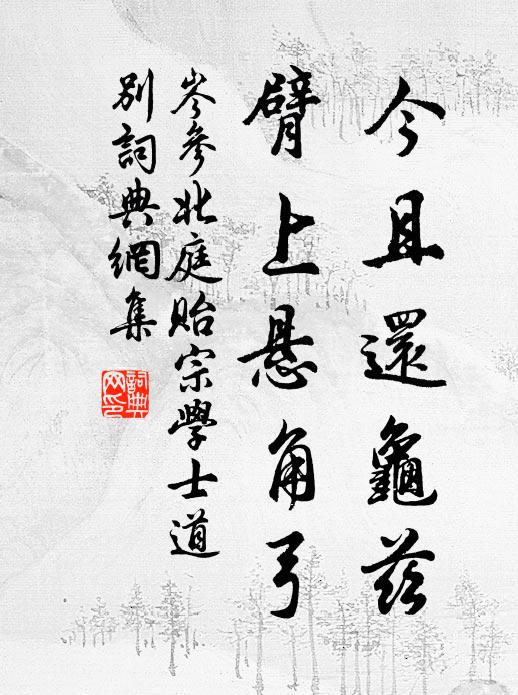 今且還龜茲
臂上悬角弓
岑參北庭貽宗學士道
别詞典網集
詞典
网印